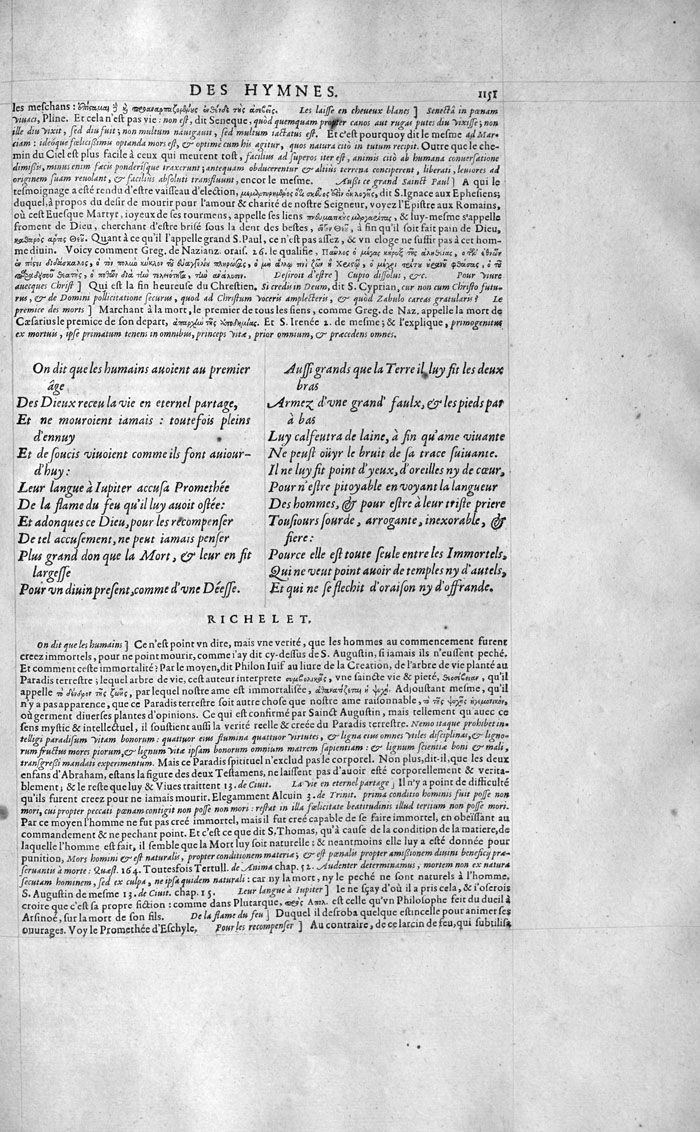 DES HYMNES. 1151
les meschans: Les laisse en cheveux blancs ] Senectâ in pœnam
vivaci, Pline. Et cela n'est pas vie: non est, dit Seneque, quòd quemquam propter canos aut rugas putes diu vixisse; non
ille diu vixit, sed diu fuit; non multum navigavit, sed multum iactatus est. Et c'est pourquoy dit le mesme ad Mar-
ciam: ideóque fœlicißimù optanda mors est, & optimè cum his agitur, quos natura citò in tutum recipit. Outre que le che-
min du Ciel est plus facile à ceux qui meurent tost, facilius ad superos iter est, animis citò ab humana conuersatione
dimißis, minus enim facis ponderisque traxerunt; antequam obducerentur & altius terrena conciperent, liberati, leuiores ad
originem suam reuolant, & facilius absoluti transfluunt, encor le mesme. Außi ce grand Sainct Paul ] A qui le
tesmoignage a esté rendu d'estre vaisseau d'election, dit S. Ignace aux Ephesiens;
duquel, à propos du desir de mourir pour l'amour & charité de nostre Seigneur, voyez l'Epistre aux Romains,
où cest Euesque Martyr, ioyeux de ses tourmens, appelle ses liens & luy-mesme s'appelle
froment de Dieu, cherchant d'estre brisé sous la dent des bestes, à fin qu'il soit fait pain de Dieu,
Quant à ce qu'il l'appelle grand S. Paul, ce n'est pas assez, & vn eloge ne suffit pas à cet hom-
me diuin. Voicy comment Greg. de Nazianz. orais. 26. le qualifie,
Desiroit d'estre ] Cupio dissolui, &c. Pour viure
auecques Christ ] Qui est la fin heureuse du Chrestien, Si credis in Deum, dit S. Cyprian, cur non cum Christo futu-
rus, & de Domini pollicitatione securus, quod ad Christum voceris amplecteris, & quod Zabulo careas gratularis? Le
premice des morts ] Marchant à la mort, le premier de tous les siens, comme Greg. de Naz. appelle la mort de
Cæsarius le premice de son depart, Et S. Irenée 2. de mesme; & l'explique, primogenitus
ex mortuis, ipse primatum tenens in omnibus, princeps vitæ, prior omnium, & præcedens omnes.
On dit que les humains auoient au premier
âge
Des Dieux receu la vie en eternel partage,
Et ne mouroient iamais: toutefois pleins
d'ennuy
Et de soucis viuoient comme ils font auiour-
d'huy:
Leur langue à Iupiter accusa Promethée
De la flame du feu qu'il luy auoit ostée:
Et adonques ce Dieu, pour les recompenser
De tel accusement, ne peut iamais penser
Plus grand don que la Mort, & leur en fit
largesse
Pour vn diuin present, comme d'vne Déesse.
Außi grands que la Terre il luy fit les deux
bras
Armez d'vne grand' faulx, & les pieds par
à bas
Luy calfeutra de laine, à fin qu'ame viuante
Ne peust oüyr le bruit de sa trace suiuante.
Il ne luy fit point d'yeux, d'oreilles ny de cœur,
Pour n'estre pitoyable en voyant la langueur
Des hommes, & pour estre à leur triste priere
Tousiours sourde, arrogante, inexorable, &
fiere:
Pource elle est toute seule entre les Immortels,
Qui ne veut point auoir de temples ny d'autels,
Et qui ne se flechit d'oraison ny d'offrande.
RICHELET.
On dit que les humains ] Ce n'est point vn dire, mais vne verité, que les hommes au commencement furent
creez immortels, pour ne point mourir, comme i'ay dit cy-dessus de S. Augustin, si iamais ils n'eussent peché.
Et comment ceste immortalité? Par le moyen, dit Philon Iuif au liure de la Creation, de l'arbre de vie planté au
Paradis terrestre; lequel arbre de vie, cest auteur interprete vne saincte vie & pieté, qu'il
appelle par lequel nostre ame est immortalisée, Adjoustant mesme, qu'il
n'y a pas apparence, que ce Paradis terrestre soit autre chose que nostre ame raisonnable,
où germent diuerses plantes d'opinions. Ce qui est confirmé par Sainct Augustin, mais tellement qu'auec ce
sens mystic & intellectuel, il soustient aussi la verité reelle & creée du Paradis terrestre. Nemo itaque prohibet in-
telligi paradisum vitam bonorum: quattuor eius flumina quattuor virtutes, & ligna eius omnes vtiles disciplinas, & ligno-
rum fructus mores piorum, & lignum vitæ ipsam bonorum omnium matrem sapientiam: & lignum scientiæ boni & mali,
transgreßi mandati experimentum. Mais ce Paradis spirituel n'exclud pas le corporel. Non plus, dit-il, que les deux
enfans d'Abraham, estans la figure des deux Testamens, ne laissent pas d'auoir esté corporellement & verita-
blement; & le reste que luy & Viues traittent 13. de Ciuit. La vie en eternel partage ] Il n'y a point de difficulté
qu'ils furent creez pour ne iamais mourir. Elegamment Alcuin 3. de Trinit. prima conditio hominis fuit posse non
mori, cui propter peccati pœnam contigit non posse non mori: restat in illa fœlicitate beatitudinis illud tertium non posse mori.
Par ce moyen l'homme ne fut pas creé immortel, mais il fut creé capable de se faire immortel, en obeïssant au
commandement & ne pechant point. Et c'est ce que dit S. Thomas, qu'à cause de la condition de la matiere, de
laquelle l'homme est fait, il semble que la Mort luy soit naturelle; & neantmoins elle luy a esté donnée pour
punition, Mors homini & est naturalis, propter conditionem materiæ; & est pœnalis propter amißionem diuini beneficij præ-
seruantis à morte: Quæst. 164. Toutesfois Tertull. de Anima chap. 52. Audenter determinamus, mortem non ex natura
secutam hominem, sed ex culpa, ne ipsa quidem naturali: car ny la mort, ny le peché ne sont naturels à l'homme.
S. Augustin de mesme 13. de Ciuit. chap. 15. Leur langue à Iupiter ] Ie ne sçay d'où il a pris cela, & i'oserois
croire que c'est sa propre fiction: comme dans Plutarque, est celle qu'vn Philosophe feit du dueil à
Arsinoé, sur la mort de son fils. De la flame du feu ] Duquel il desroba quelque estincelle pour animer ses
ouurages. Voy le Promethée d'Eschyle. Pour les recompenser ] Au contraire, de ce larcin de feu, qui subtilisa